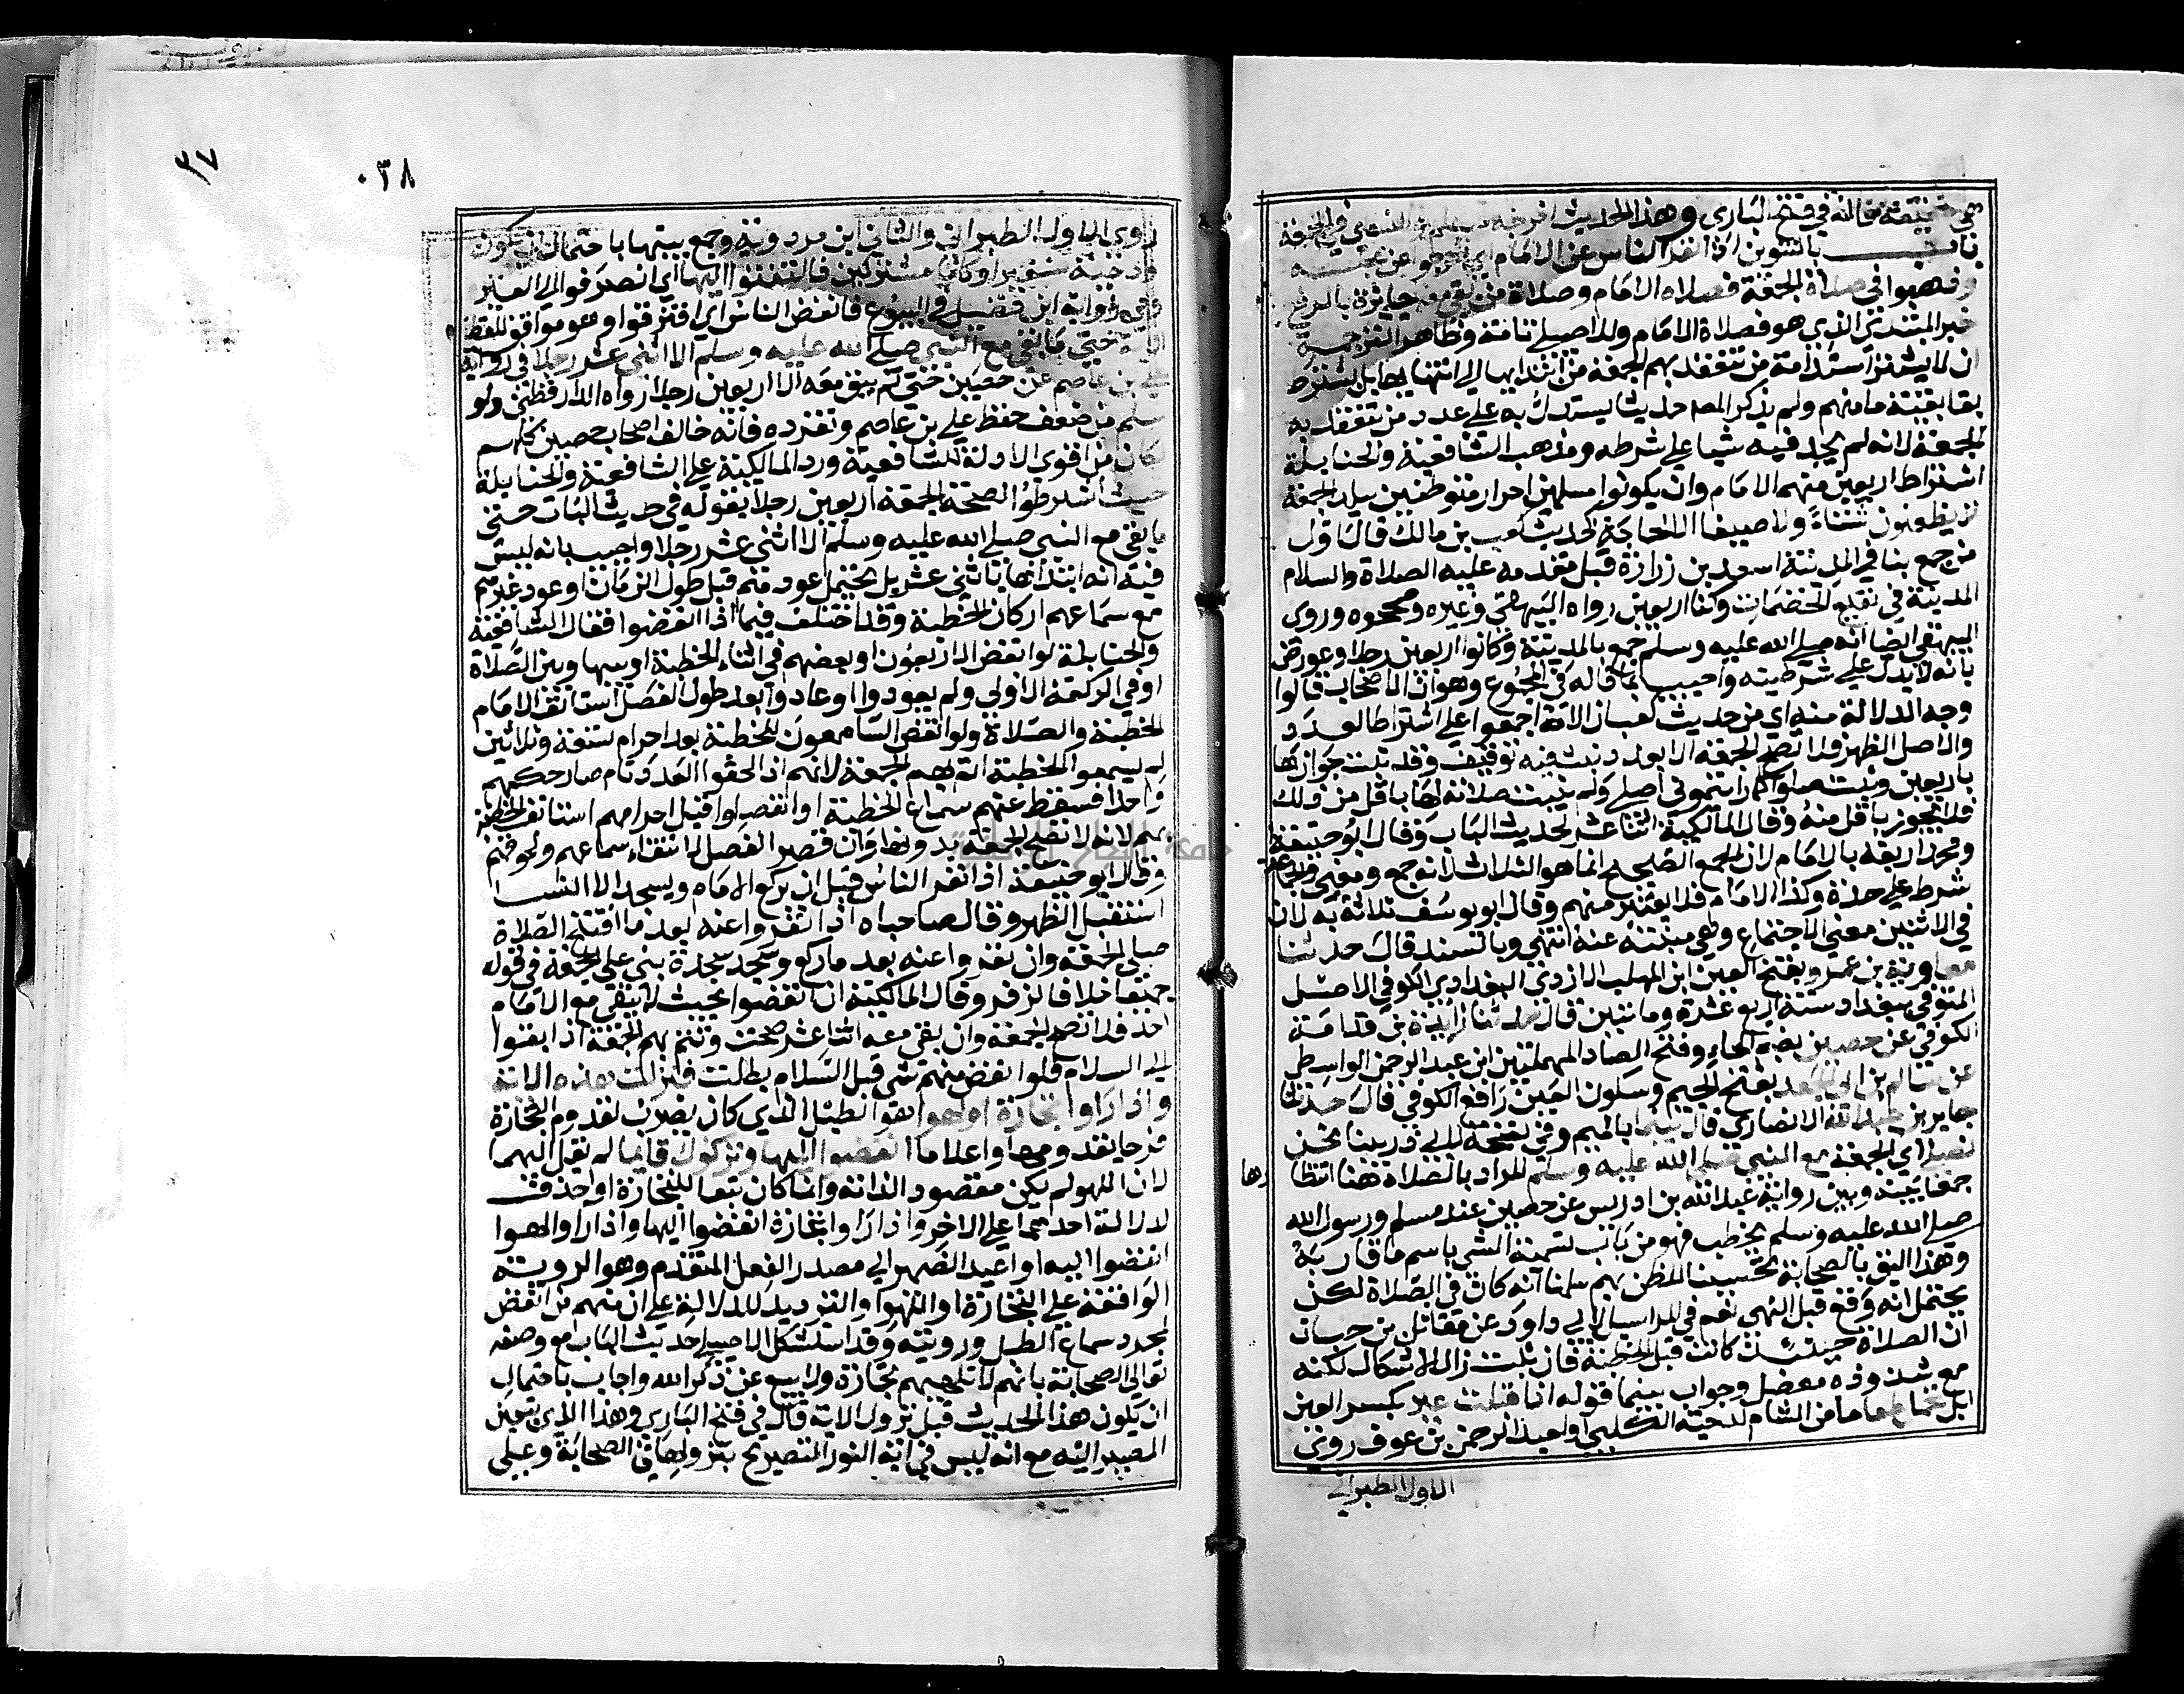 هي متيقنة قاله في فتح الباري وهذا الحديث اخرجه مسلم والنسائي في الجمعة
باب بالتنوين اذا نفر الناس عن الامام اي خرجوا عن
وذهبوا في صلاة الجمعة فصلاة الامام وصلاة من بقي معه جائزة بالرفع
خبر المبتدا الذي هو فصلاة الامام وللاصيلي تامة وظاهر الترجمة
ان لا يشترط استدامة من تنعقد بهم الجمعة من ابتدايها الي انتهايها بل يشترط
بقا بقية ما منهم ولم يذكر المص حديثا يستدل به علي عدد من تنعقد به
الجمعة لانه لم يجد فيه شيا علي شرطه ومذهب الشافعية والحنابلة
اشتراط اربعين منهم الامام وان يكونوا مسلمين احرار متوطنين ببلد الجمعة
لا يظعنون شتاء ولا صيفا الا لحاجة لحديث كعب بن مالك قال اول
من جمع بنا في المدينة اسعد بن زرارة قبل مقدمه عليه الصلاة والسلام
المدينة في نقيع الخضمات وكنا اربعين رواه البيهقي وغيره وصححوه وروي
البيهقي ايضا انه صلي الله عليه وسلم جمع بالمدينة وكانوا اربعين رجلا وعورض
بانه لا يدل علي شرطيته واجيب بما قاله في المجموع وهو ان الاصحاب قالوا
وجه الدلالة منه اي من حديث كعب ان الامة اجمعوا علي اشتراط العدد
والاصل الظهر فلا تصح الجمعة الا بعدد ثبت فيه توقيف وقد ثبت جوازها
باربعين وثبت صلوا كما رايتموني اصلي ولم يثبت صلاته لها باقل من ذلك
فلا تجوز باقل منه وقال المالكية اثنا عشر لحديث الباب وقال ابو حنيفة
ومحمد اربعة بالامام لان الجمع الصحيح انما هو الثلاث لانه جمع ومعني والجماعة
شرط علي حدة وكذا الامام فلا يعتبر منهم وقال ابو يوسف ثلاثة به لان
في الاثنين معني الاجتماع وهي مبنية عنه انتهي وبالسند قال حدثنا
معاوية بن عمرو بفتح العين ابن المهلب الازدي البغدادي الكوفي الاصل
المتوفي ببغداد سنة اربع عشرة ومائتين قال حدثنا زايدة بن قدامة
الكوفي عن حصين بضم الحاء وفتح الصاد المهملتين ابن عبد الرحمن الواسطي
عن سالم بن ابي الجعد بفتح الجيم وسكون العين رافع الكوفي قال حدثنا
جابر بن عبد الله الانصاري قال بينما بالميم وفي نسخة لابي ذر بينا نحن
نصلي اي الجمعة مع النبي صلي الله عليه وسلم المراد بالصلاة هنا انتظا
رها
جمعا بينه وبين رواية عبد الله بن ادريس عن حصين عند مسلم ورسول الله
صلي الله عليه وسلم يخطب فهو من باب تسمية الشي باسم ما قاربه
وهذا اليق بالصحابة تحسينا للظن بهم سلمنا انه كان في الصلاة لكن
يحتمل انه وقع قبل النهي نعم في المراسيل لابي داود عن مقاتل بن حبان
ان الصلاة حينئذ كانت قبل الخطبة فان ثبت زال الاشكال لكنه
مع شذوذه معضل وجواب بينما قوله اذ اقبلت عير بكسر العين
ابل تحمل طعاما من الشام لدحية الكلبي او لعبد الرحمن بن عوف روي
الاول الطبراني
٠٣٨
٣٧
روي الاول الطبراني والثاني ابن مردوية وجمع بينهما باحتمال ان تكون
ودحية سفيرا وكانا مشتركين فالتفتوا اليها اي انصرفوا الي العير
وفي رواية ابن فضيل في البيوع فانفض الناس اي افترقوا وهو موافق للفظ
الاية حتي ما بقي مع النبي صلي الله عليه وسلم الا اثني عشر رجلا في رواية
علي بن عاصم عن حصين حتي لم يبق معه الا اربعين رجلا رواه الدارقطني ولو
سلم من ضعف حفظ علي بن عاصم وتفرده فانه خالف اصحاب حصين كلهم
لكان من اقوي الادلة للشافعية ورد المالكية علي الشافعية والحنابلة
حيث اشترطوا لصحة الجمعة اربعين رجلا بقوله في حديث الباب حتي
ما بقي مع النبي صلي الله عليه وسلم الا اثني عشر رجلا واجيب بانه ليس
فيه انه ابتداها باثني عشر بل يحتمل عودهم قبل طول الزمان او عود غيرهم
مع سماعهم اركان الخطبة وقد اختلف فيما اذا انفضوا فقال الشافعية
والحنابلة لو انفض الاربعون او بعضهم في اثناء الخطبة او بينها وبين الصلاة
او في الركعة الاولي ولم يعودوا او عادوا بعد طول الفصل استانف الامام
الخطبة والصلاة ولو انفض السامعون للخطبة بعد احرام تسعة وثلاثين
لم يسمعوا الخطبة اتم بهم الجمعة لانهم اذ الحقوا العدد تام صار حكمهم
واحدا فسقط عنهم سماع الخطبة او انفضوا قبل احرامهم استانف الخطبة
بهم لانه لا تصح الجمعة بدونها وان قصر الفصل لانتفاء سماعهم ولحوقهم
وقال ابو حنيفة اذا نفر الناس قبل ان يركع الامام ويسجد الا النسا
استقبل الظهر وقال صاحباه اذا نفروا عنه بعد ما افتتح الصلاة
صلي الجمعة وان نفروا عنه بعد ما ركع وسجد سجدة بني علي الجمعة في قولهم
جميعا خلافا لزفر وقال المالكية ان انفضوا بحيث لا يبقي مع الامام
احد فلا تصح الجمعة وان بقي معه اثنا عشر صحت وتتم بهم الجمعة اذا بقوا
الي السلام فلو انفض منهم شي قبل السلام بطلت فنزلت هذه الاية
واذا راوا تجارة او لهوا هو الطبل الذي كان يضرب لقدوم التجارة
فرحا بقدومها واعلاما انفضوا اليها وتركوك قايما لم يقل اليهما
لان اللهو لم يكن مقصودا لذاته وانما كان تبعا للتجارة او حذفت
لدلالة احدهما علي الاخر واذا راوا تجارة انفضوا اليها واذا راوا لهوا
انفضوا اليه او اعيد الضمير الي مصدر الفعل المتقدم وهو الروية
الواقعة علي التجارة او اللهو والترديد للدلالة علي ان منهم من انفض
لمجرد سماع الطبل ورويته وقد استشكل الاصيلي حديث الباب مع وصفه
تعالي الصحابة بانهم لا تلهيهم تجارة ولا بيع عن ذكر الله واجاب باحتمال
ان يكون هذا الحديث قبل نزول الاية قال في فتح الباري وهذا الذي يتعين
المصير اليه مع انه ليس في اية النور التصريح بنزولها في الصحابة وعلي